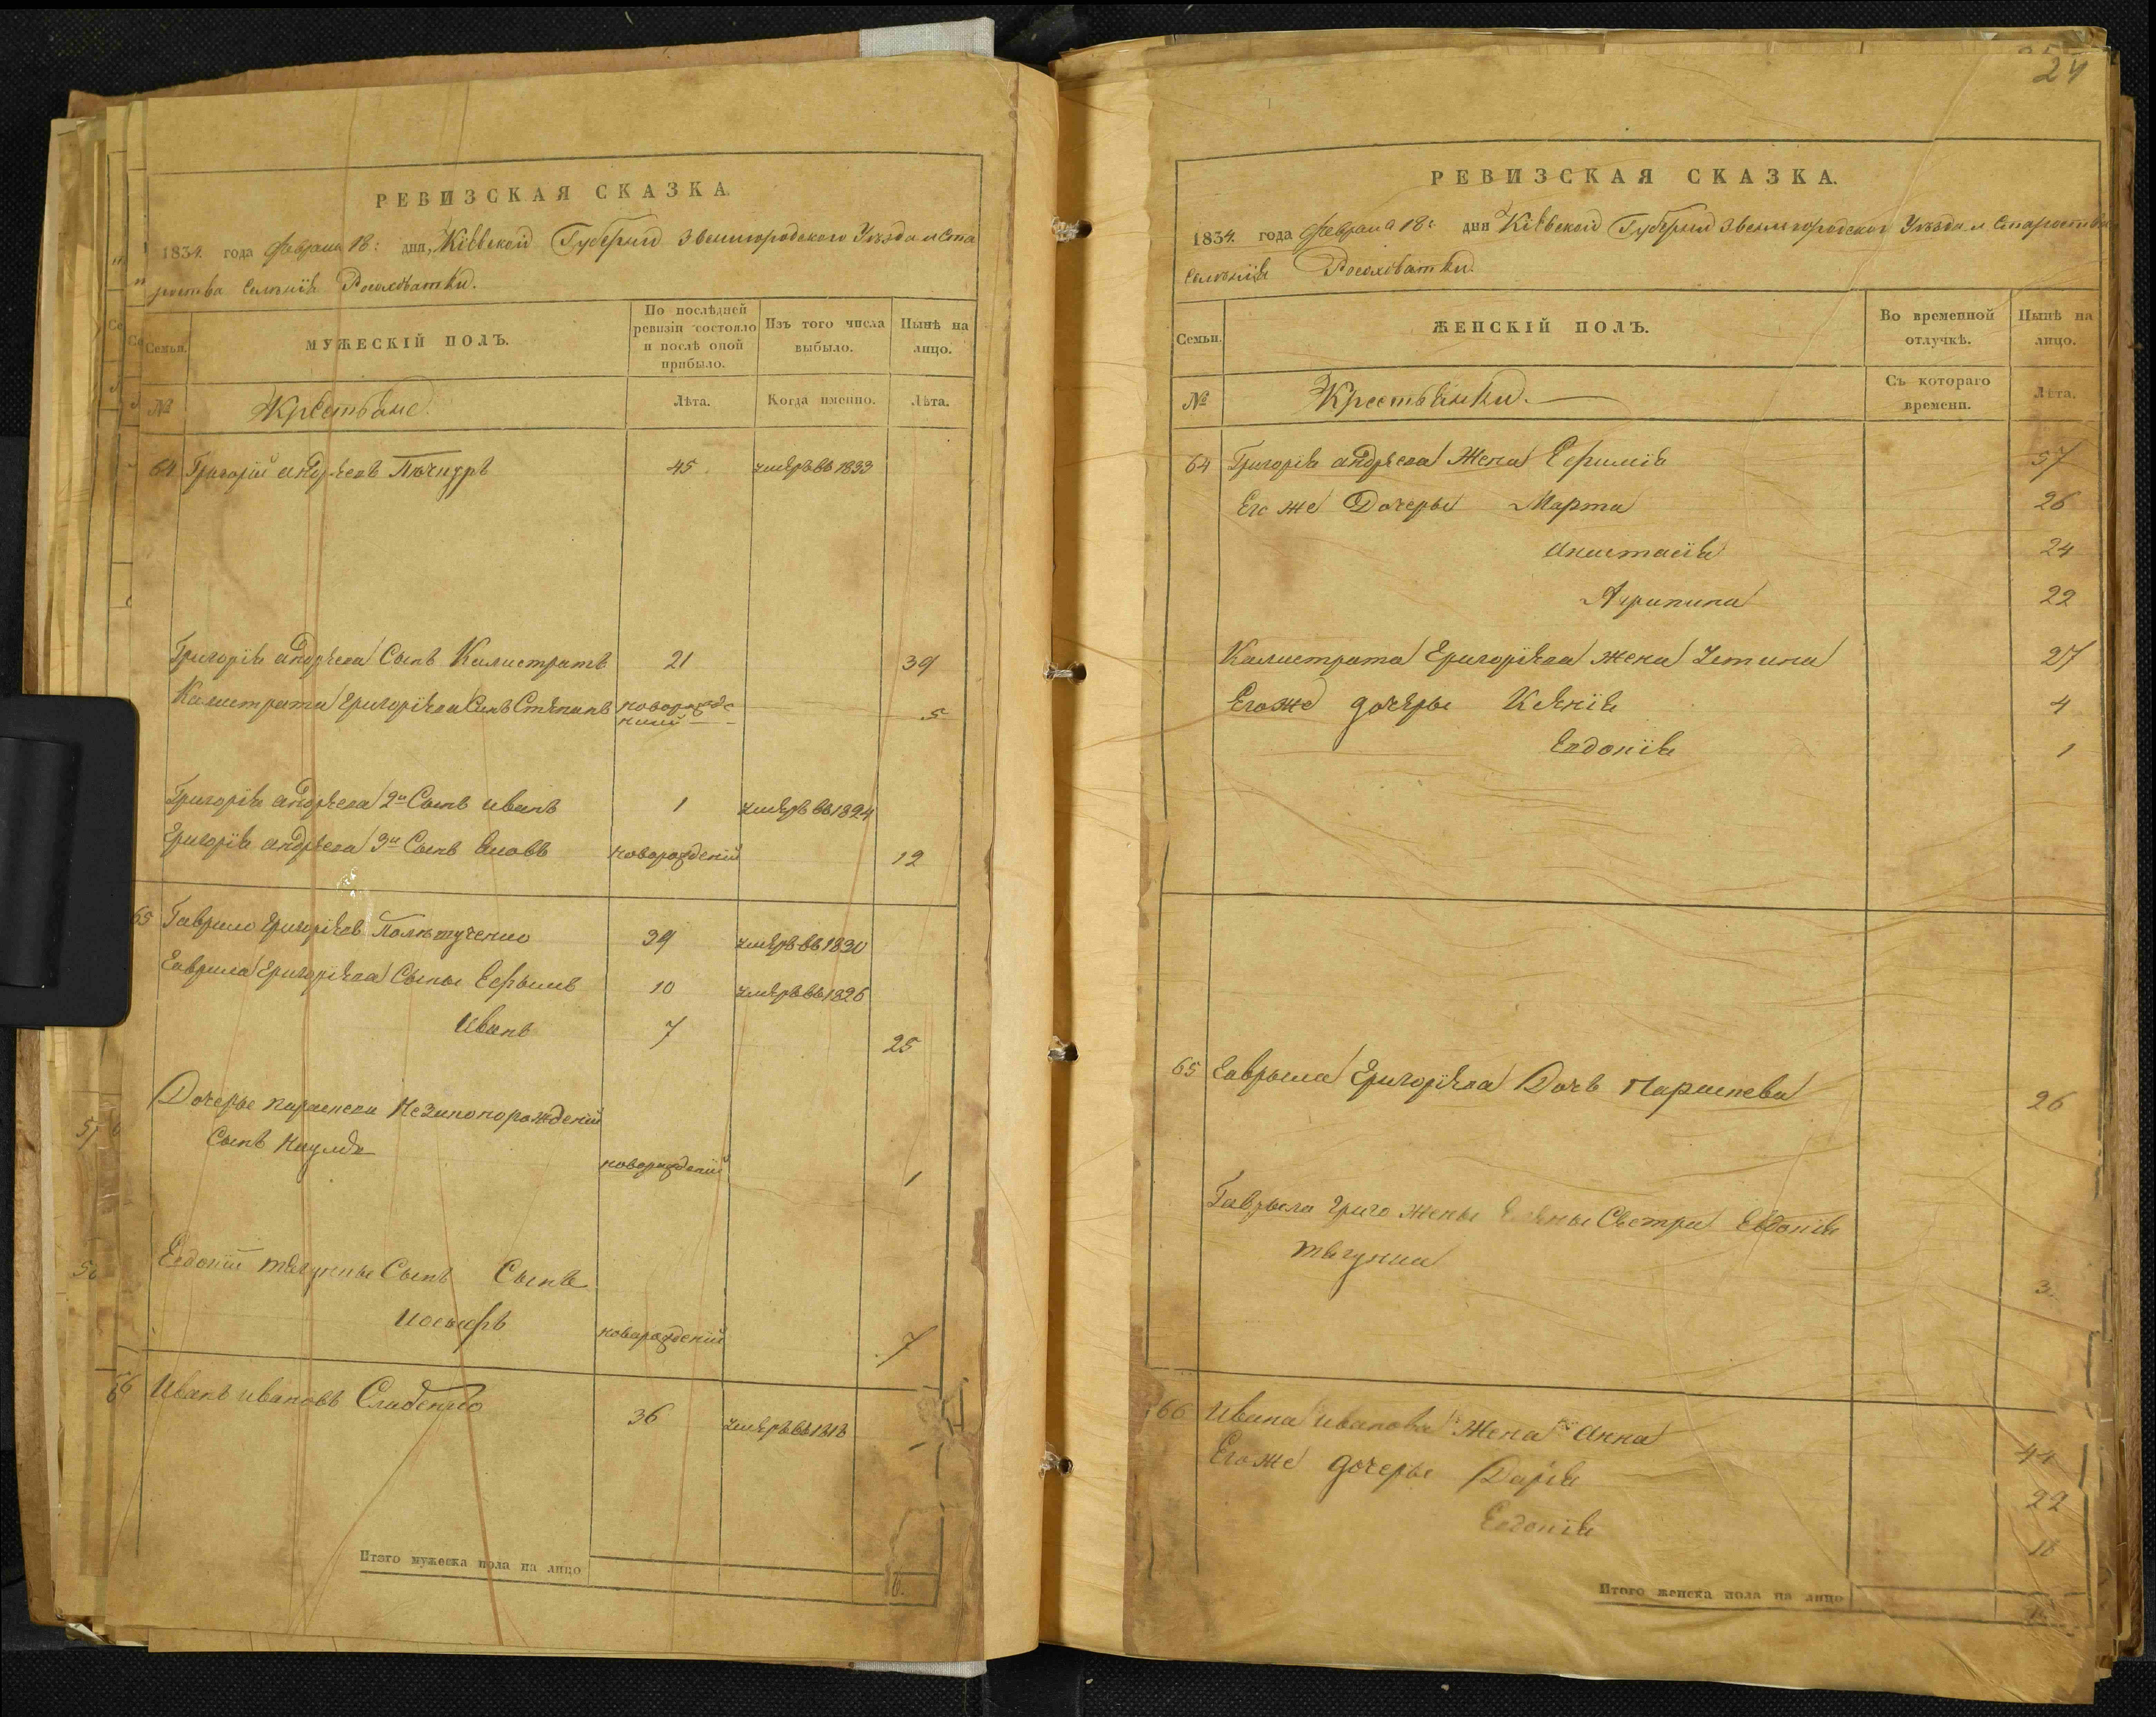 РЕВИЗСКАЯ СКАЗКА.
1834. года Февраля 18: дня, Кіевской Губерніи Звенигородского Уѣзда и Ста
роства Селенія Росоховатки.
Семьи.
МУЖЕСКІЙ ПОЛЪ.
По послѣдней ревизіи состояло и послѣ оной прибыло.
Изъ того числа выбыло.
Нынѣ на лицо.
№
Крестьяне.
Лѣта.
Когда именно.
Лѣта.
64 Григорій андреевъ 45 умеръ въ 1833
Григорія андреева Сынъ Калистратъ 21 39
Калистрата Григоріева Синъ Степанъ новорожде 5
ний
Григорія андреева 2й Сынъ иванъ 1 умеръ въ 1824
Григорія андреева 3й Сынъ 12 новорожденій
65 Гаврило Григоріевъ 39 умеръ въ 1830
Гаврила Григоріева Сыны Ефымъ 10 умеръ въ 1826
Иванъ 7 25
Дочеры параскеви Незаконорожденій
Сынъ Наумъ новорожденій 1
Евдокіи тягунны Сынъ Сынъ
Иосыфъ новорожденій 7
66 Иванъ ивановъ 36 умеръ въ 1818
Итого мужеска пола на лицо
24
РЕВИЗСКАЯ СКАЗКА.
1834. года Февраля 18: дня Кіевской Губерніи Звенигородског Уѣзда и Староства
Селенія Росоховатки.
Семьи.
ЖЕНСКІЙ ПОЛЪ.
Во временной отлучкѣ.
Нынѣ на лицо.
№
Крестьянки.
Съ котораго времени.
Лѣта.
64 Григорія андреева Жена Ефимія 57
Его же Дочеры Марта 26
Анастасія 24
Агрипина 22
Калистрата Григоріева жена Устина 27
Егоже дочеры Ксенія 4
Евдокія 1
65 Гаврыла Григоріева Дочъ Параскева 26
Гаврыла Григо жены Сестра Евдокія
тягунна 3.
66 Ивана иванова Жена Анна 44
Егоже дочеры Дарія 22
Евдокія 18
Итого женска пола на лицо